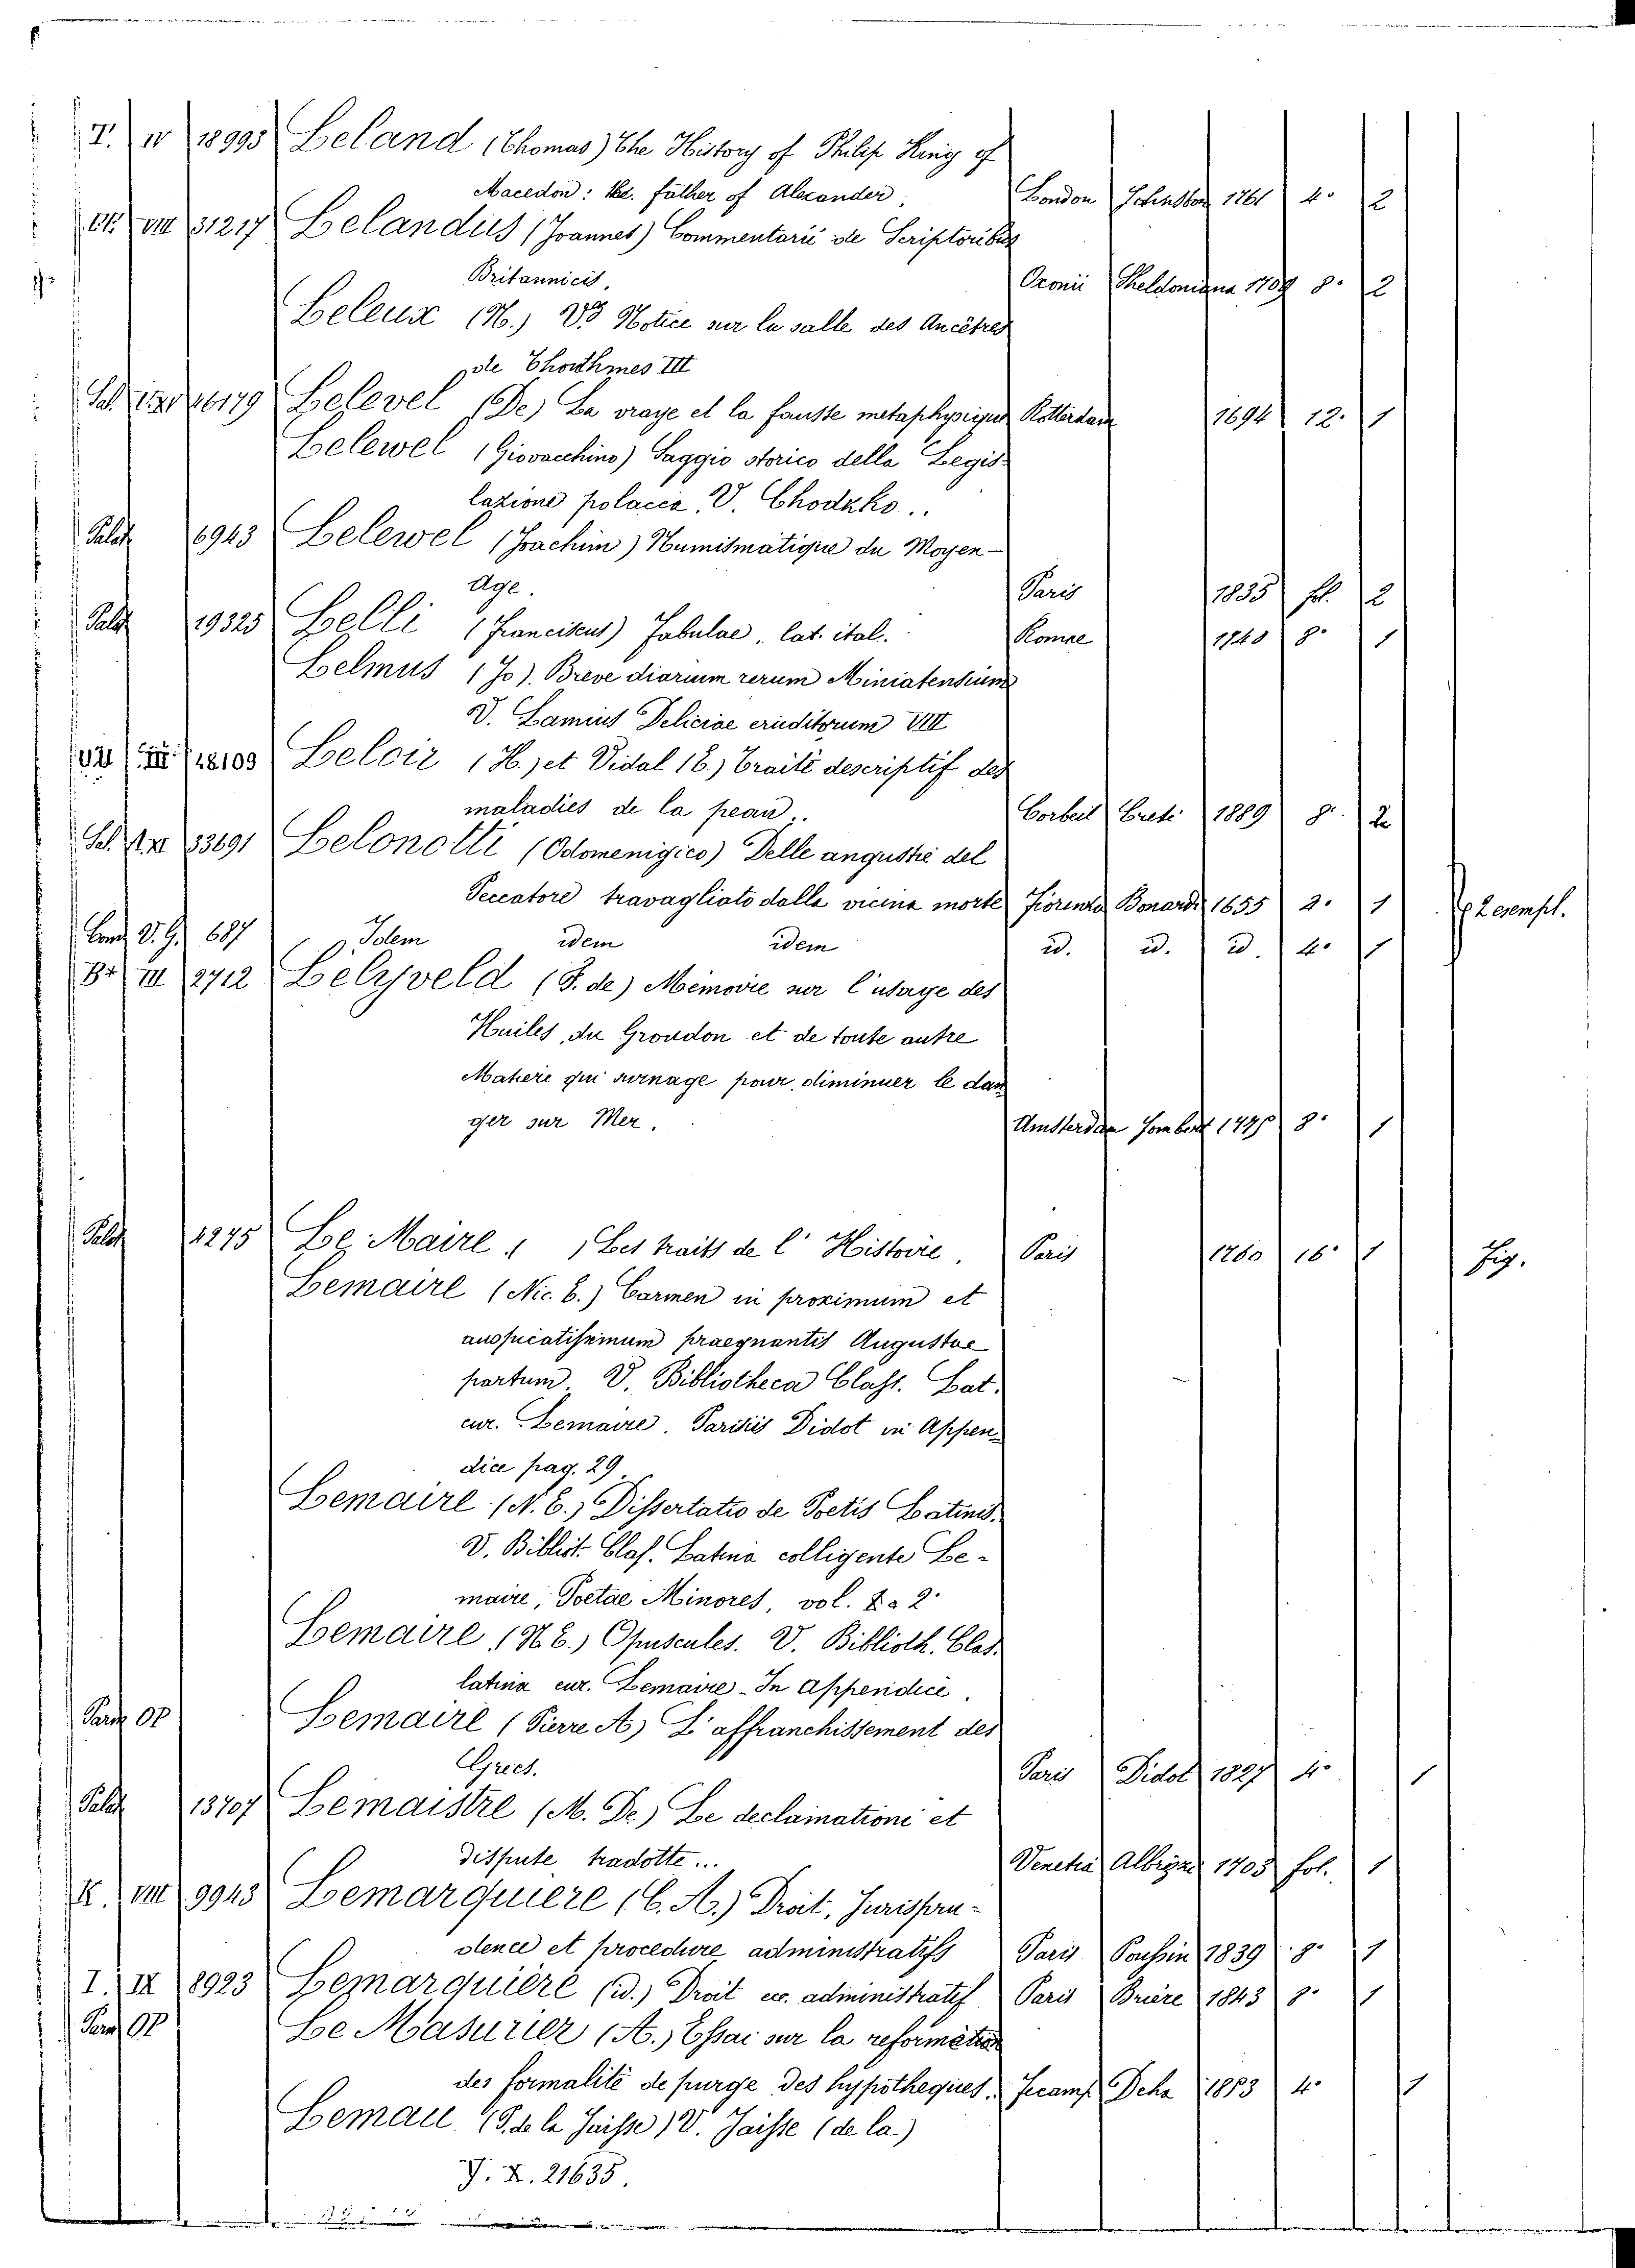 T. IV 18995 Leland (Thomas) The History of Philip King of
Macedon: the father of Alexander, London Johnston 1761 4° 2
Cl. VIII 31217 Lelandus (Joannes) Commentarii de Scriptoribus
Britannicis. Oxonii Sheldoniana 1709 8° 2
Leleux (H.) V° Notice sur la salle des Ancêtres
de Thouthmes III
16179 Lelevel (De) La vraye et la fausse metaphysique Rotterdam 1694 12. 1
Lelewel (Giovacchino) Saggio storico della Legis-
lazione polacca. V. Chodzko..
Palat 6943 Lelewel (Joachim) Numismatique du Moyen-
Age. Paris 1835 fol. 2
Palat 19325 Lelli (Franciscus) Fabulae, lat. ital. Romae 1740 8° 1
Lelmus (Jo). Breve diarium rerum Miniatensium
V. Lamius Deliciae eruditorum VIII
III 18109 Leloir (H.) et Vidal (E.) Traité descriptif des
maladies de la peau.. Corbeil Creté 1889 8° 2
33691 Lelonotti (Odomenigico) Delle angustie del
Peccatore travagliato dalla vicina morte Fiorenza Bonardi 1655 2° 1 2 esempl.
V. G. 687 Idem idem idem id. id. id. 4° 1
III 2712 Lelyveld (F. de) Mémoire sur l'usage des
Huiles, du Groudon et de toute autre
Matiere qui surnage pour diminuer le dan
ger sur Mer. Amsterdam 8° 1
Palat 4275 Le Maire ( ) Les traits de l'Histoire. Paris 1760 16° 1 fig.
Lemaire (Nic. E.) Carmen in proximum et
auspicatissimum praegnantis Augustae
partum V. Bibliotheca Class. Lat.
cur. Lemaire. Parisiis Didot in Appen-
dice pag. 29.
Lemaire (N. E.) Dissertatio de Poetis Latinis.
V. Bibliot. Clas. Latina colligente Le-
maire, Poetae Minores, vol. 2°
Lemaire (N E.) Opuscules. V. Biblioth. Clas.
latina cur. Lemaire - In Appendice.
OP Lemaire (Pierre A) L'affranchissement des
Grecs. Paris Didot 1827 4° 1
Palat 13707 Lemaistre (M. De) Le declamationi et
dispute tradotte... Venetia Albrizzi 1705 fol. 1
K. VIII 9943 Lemarquiere (E. A.) Droit, Jurispru-
dence et procedure administratifs Paris Poussin 1839 8° 1
I. IX 8923 Lemarquière (id.) Droit ecc. administratif Paris Brière 1843 8° 1
OP Le Masurier (A.) Essai sur la reformation
des formalité de purge des hypotheques. Fecamp 1883 4° 1
Lemau (P. de la Jaisse) V. Jaisse (de la)
F. X. 21635.